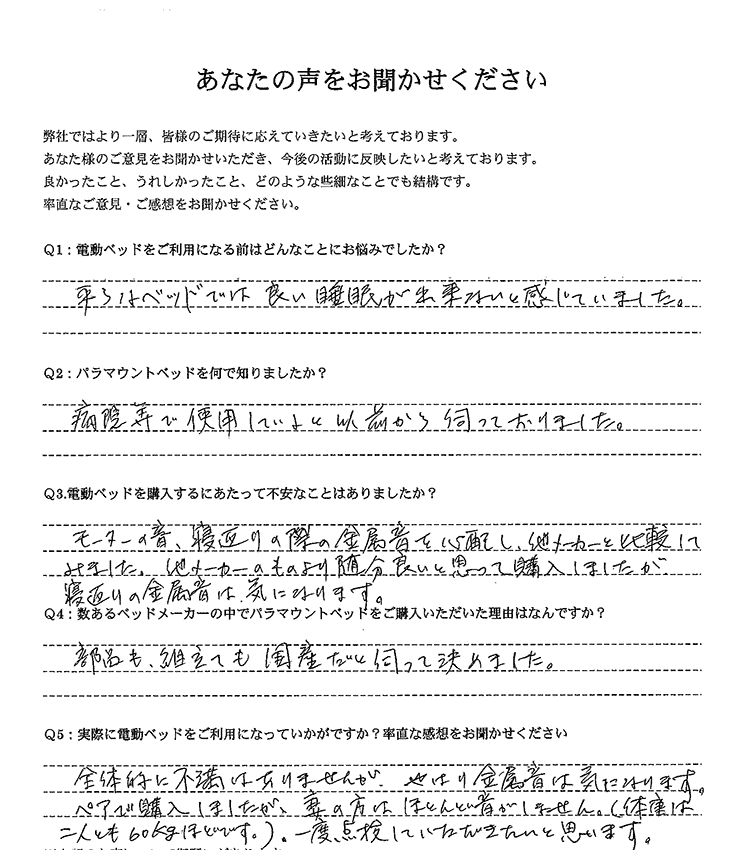 あなたの声をお聞かせください
弊社ではより一層、皆様のご期待に応えていきたいと考えております。
あなた様のご意見をお聞かせいただき、今後の活動に反映したいと考えております。
良かったこと、うれしかったこと、どのような些細なことでも結構です。
率直なご意見・ご感想をお聞かせください。
Q1：電動ベッドをご利用になる前はどんなことにお悩みでしたか？
平らなベッドでは良い睡眠が出来ないと感じていました。
Q2：パラマウントベッドを何で知りましたか？
病院等で使用していると以前から伺っておりました。
Q3.電動ベッドを購入するにあたって不安なことはありましたか？
モーターの音、寝返りの際の金属音を心配し、他メーカーと比較して
みました。他メーカーのものより随分良いと思って購入しましたが
寝返りの金属音は気になります。
Q4：数あるベッドメーカーの中でパラマウントベッドをご購入いただいた理由はなんですか？
部品も、組立ても国産だと伺って決めました。
Q5：実際に電動ベッドをご利用になっていかがですか？率直な感想をお聞かせください
全体的に不満はありませんが、やはり金属音は気になります。
ペアで購入しましたが、妻の方はほとんど音がしません。（体重は
二人とも60kgほどです。）。一度点検していただきたいと思います。